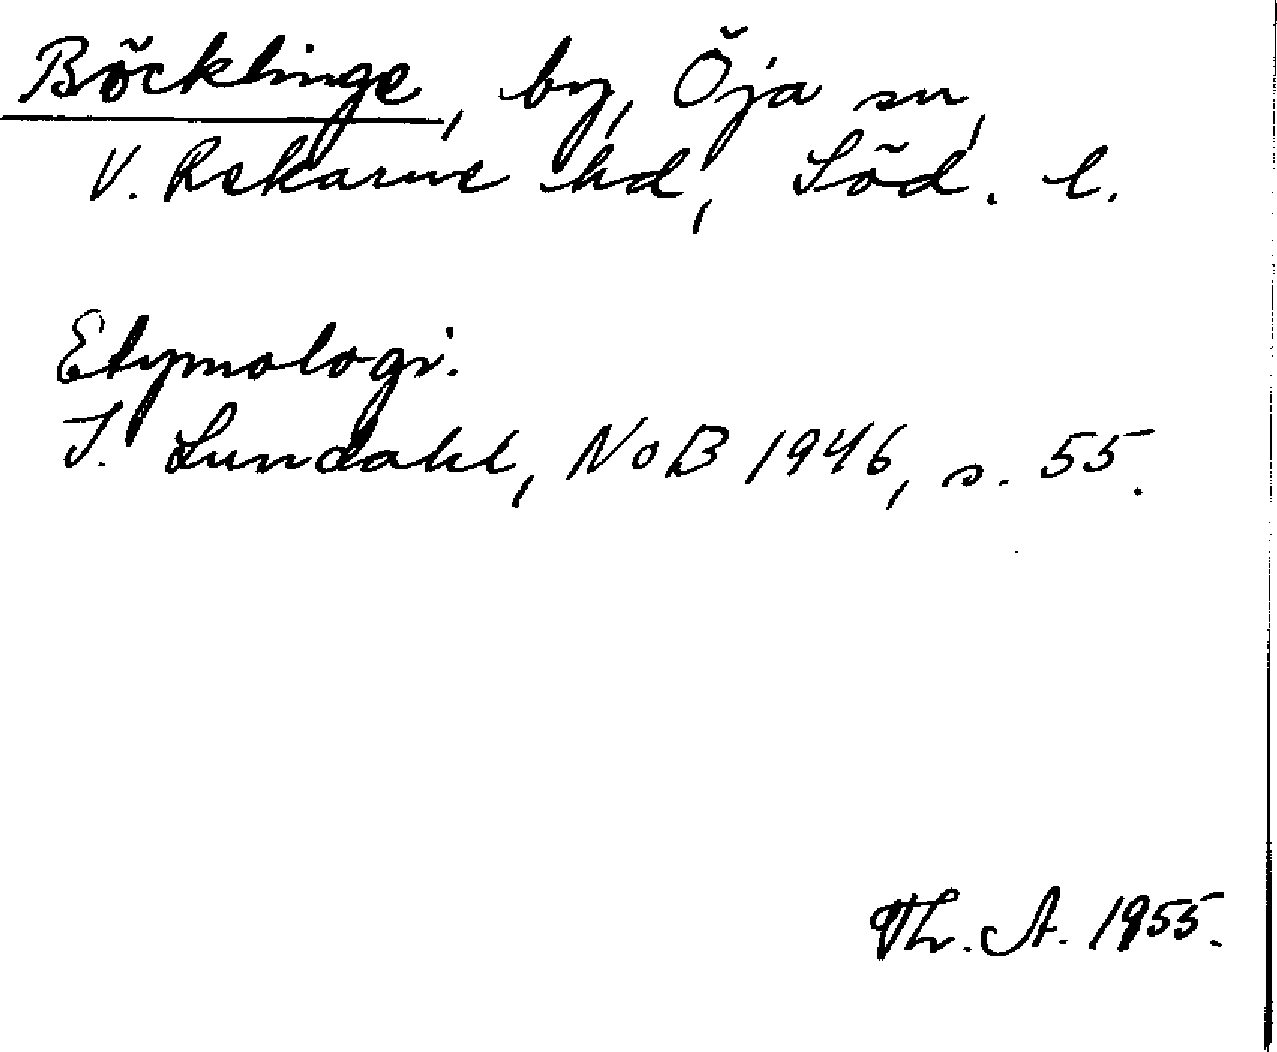 Böcklinge, by, Öja sn,
V. Rekarne hd, Söd. l.
Etymologi.
I. Lundahl, NoB 1946, s. 55.
Th. A. 1955.